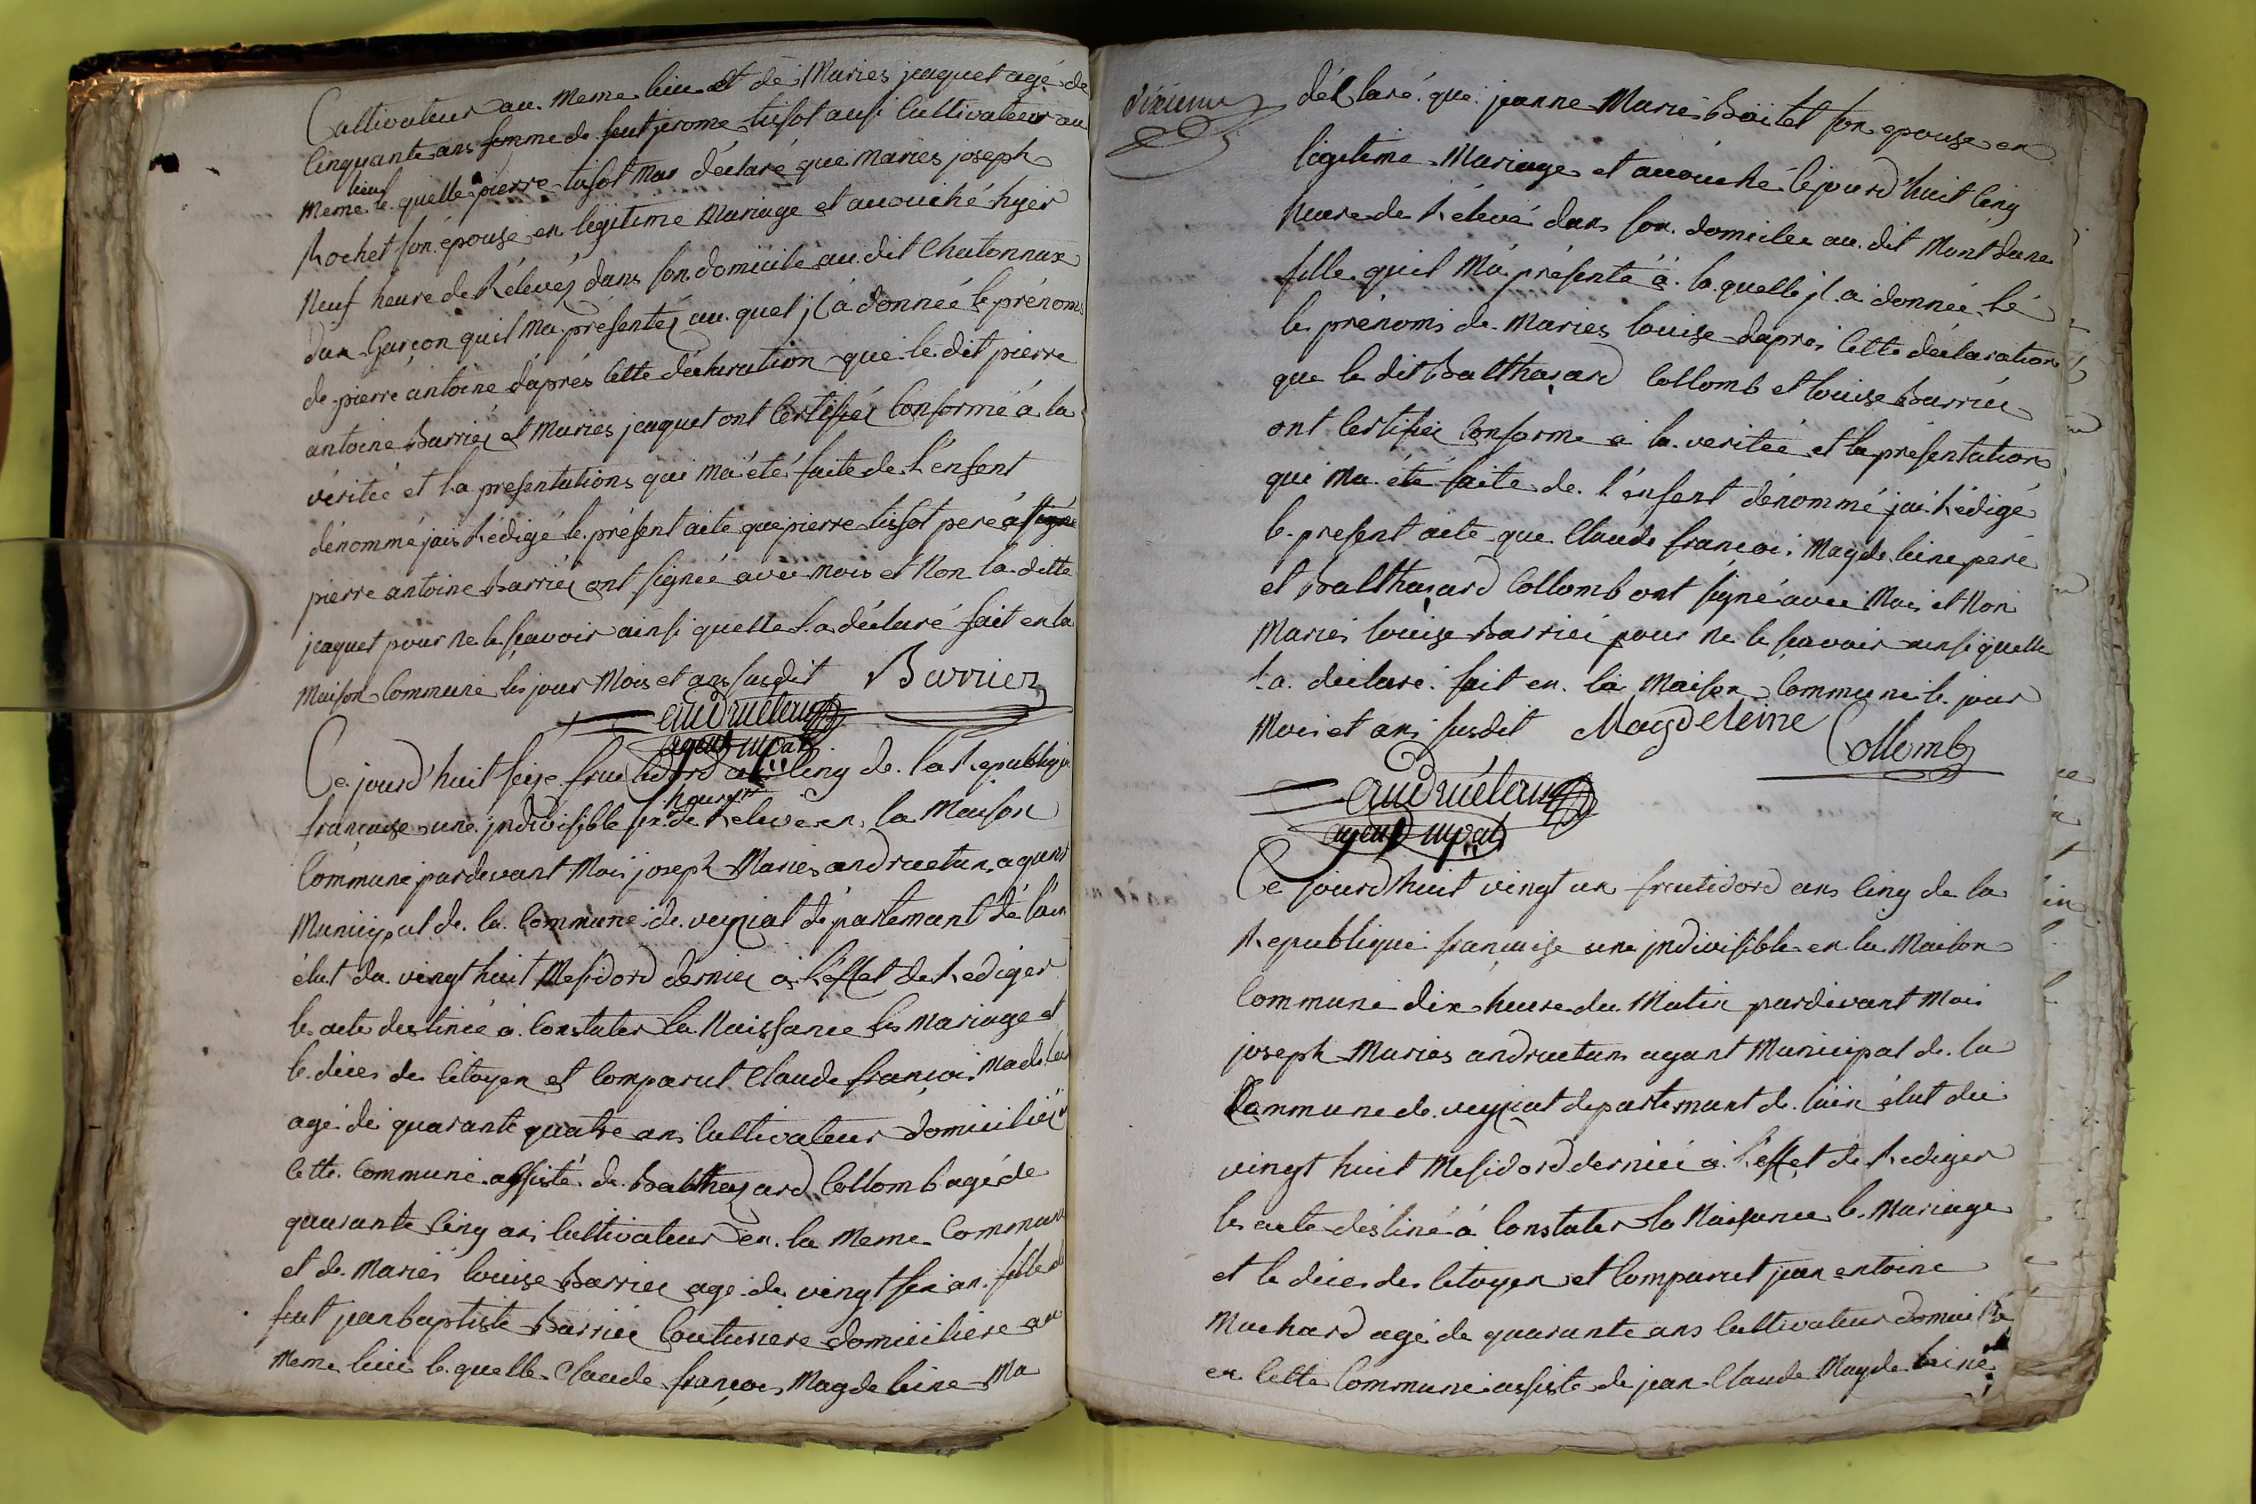 Cultivateur au meme lieu et de Maries jaquet agé de
Cinquante ans femme de feut jerome tissot ausi Cultivateur au
meme lieu le quelle pierre tissot Ma déclaré que maries joseph
Rochet son épouse en legitime Mariage et acouché hyer
neuf heure de Rélevéz dans son domicile au dit Chatonnax
dun Garçon quil ma présentéz au quel jl à donnée le prénoms
de pierre antoine d'aprés Cette déclaration que le dit pierre
antoine Barriez et Maries jaquet ont Certifiéz Conforme à la
véritée et la presentations qui ma été faite de L'enfent
dénommé jais Rédigé le présent acte que pierre tissot pere et
pierre antoine Barriez ont signéé avec mois et Non la ditte
jaquet pour ne le sçavoir ainsi quelle La déclaré fait en la
Maison Commune les jour Mois et ans susdit Barrier
andruétan
agent mpal
Ce jourd'huit seize fructidord ans Cinq de la Republique
française une jndivisible six heures de Relevé en la Maison
Commune pardevant Mois joseph Maries andruetan agent
Municipal de la Commune de veyziat départemant de lain
élut du vingt huit Mesidord dernier à L'éffet de Rediger
les acte destinéé à Constater la Naissance les Mariage et
le déces des Citoyen et Comparut Claude françois
agé de quarante quatre ans Cultivateur domiciliéz
Cette Commune assisté de Balthazard Collomb agé de
quarante Cinq ans Cultivateur en la Meme Commune
et de Maries louise Barriez agé de vingt six an fille de
feut jean baptiste Barriéz Couturiere domiciliere au
Meme lieu le quelle Claude françois Magdeleine Ma
dixieme
déclaré que jeanne Marie Boitet son epouse en
legitime Mariage et acouché Cejourd'huit Cinq
heure de Rélevé dans son domicilee au dit Mont dune
fille quil Ma présenté à la quelle jl a donnée Lé
le prénoms de Maries louise daprés Cette déclaration
que le dit Balthazard Collomb et louise Barriéz
ont Certifiéz Conforme à la veritée et la présentations
qui Ma été faite de L'énfent dénommé jai Rédigé
le present acte que Claude françois Magdeleine peré
et Balthazard Collomb ont signé avec Mois et Non
Maries louise Barriéz pour Ne le sçavoir ainsi quelle
La déclaré fait en la Maison Commune le jour
Mois et ans susdit Magdeleine Collomb
andruétan
agent mpal
Ce jourd'huit vingt un fructidord ans Cinq de la
Republique française une jndivisible en la Maison
Commune dix heure du Matin pardevant Mois
joseph Maries andruetan agant Municipal de la
Commune de veyziat departemant de lain élut du
vingt huit Mesidord derniéé à L'éffet de Rediger
les acte déstiné à Constater la Naissance le Mariage
et le déces des Citoyen et Comparut jean antoine
Machard agé de quarante ans Cultivateur domicilié
en Cette Commune assisté de jean Claude Magdeleine